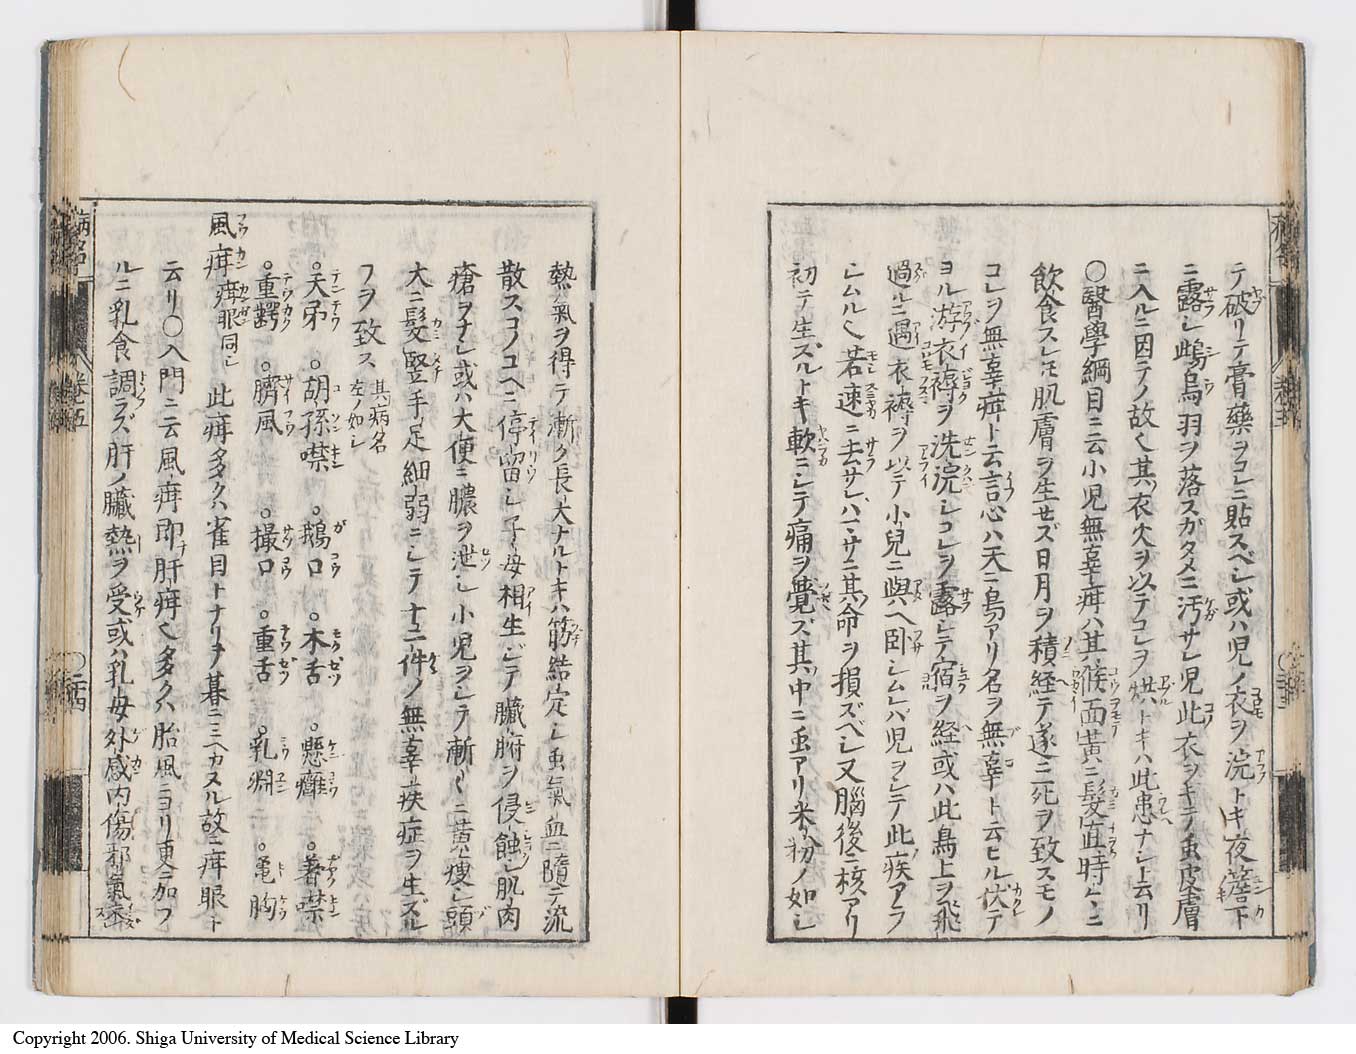 テ破リテ膏藥ヲコレニ貼スベシ或ハ児ノ衣ヲ浣トキ夜簷下
ニ露シ鴟烏羽ヲ落スガタメニ汚サレ児此衣ヲキテ虫皮膚
ニ入ルニ因テノ故也其衣久ヲ以テコレヲ烘トキハ此患ナシト云リ
○醫學綱目ニ云小児無辜疳ハ其候面黄ニ髮直時々ニ
飲食スレ𪜈肌膚ヲ生セズ日月ヲ積経テ遂ニ死ヲ致スモノ
コレヲ無辜疳ト云言心ハ天ニ鳥アリ名ヲ無辜ト云ヒル伏テ
ヨル游衣褥ヲ洗浣シコレヲ露シテ宿ヲ経或ハ此鳥上ヲ飛
過ルニ遇衣褥ヲ以テ小兒ニ與ヘ卧シムレバ児ヲシテ此疾アラ
シムル也若速ニ去サレハマサニ其命ヲ損ズベシ又腦後ニ核アリ
初テ生ズルトキ軟ニシテ痛ヲ覺ズ其中ニ虫アリ米粉ノ如シ
熱氣ヲ得テ漸ク長大ナルトキハ筋結定シ虫氣血ニ隨テ流
散スコノユヘニ停留シ子母相生ジテ臟腑ヲ侵蝕シ肌肉
瘡ヲナシ或ハ大便ニ膿ヲ泄シ小児ヲシテ漸〱ニ黄痩シ頭
大ニ髮竪手足細弱ニシテ十二件ノ無辜ノ疾症ヲ生ズル
フヲ致ス 其病名左ノ如シ
○天弔 ○胡孫噤 ○鵝口 ○木舌 ○懸癰 ○著噤
○重齶 ○臍風 ○撮口 ○重舌 ○乳 ○亀胸
風疳 疳眼同シ 此疳多クハ雀目トナリテ暮ニミヘカヌル故ニ疳眼ト
云リ○入門ニ云風疳即肝疳也多クハ胎風ニヨリ更ニ加フ
ルニ乳食調ラズ肝ノ臟熱ヲ受或ハ乳母外感内傷邪氣乘
病名
巻五
○二十四